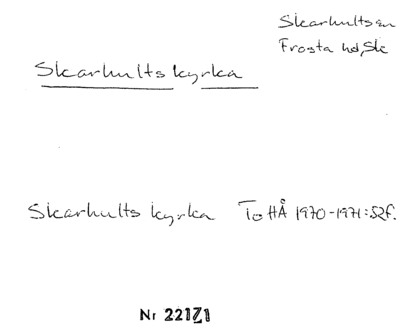 Skarhults sn
Frosta hd, Sk
Skarhults kyrka
Skarhults kyrka To HÅ 1970-1971:52f.
Nr 22171